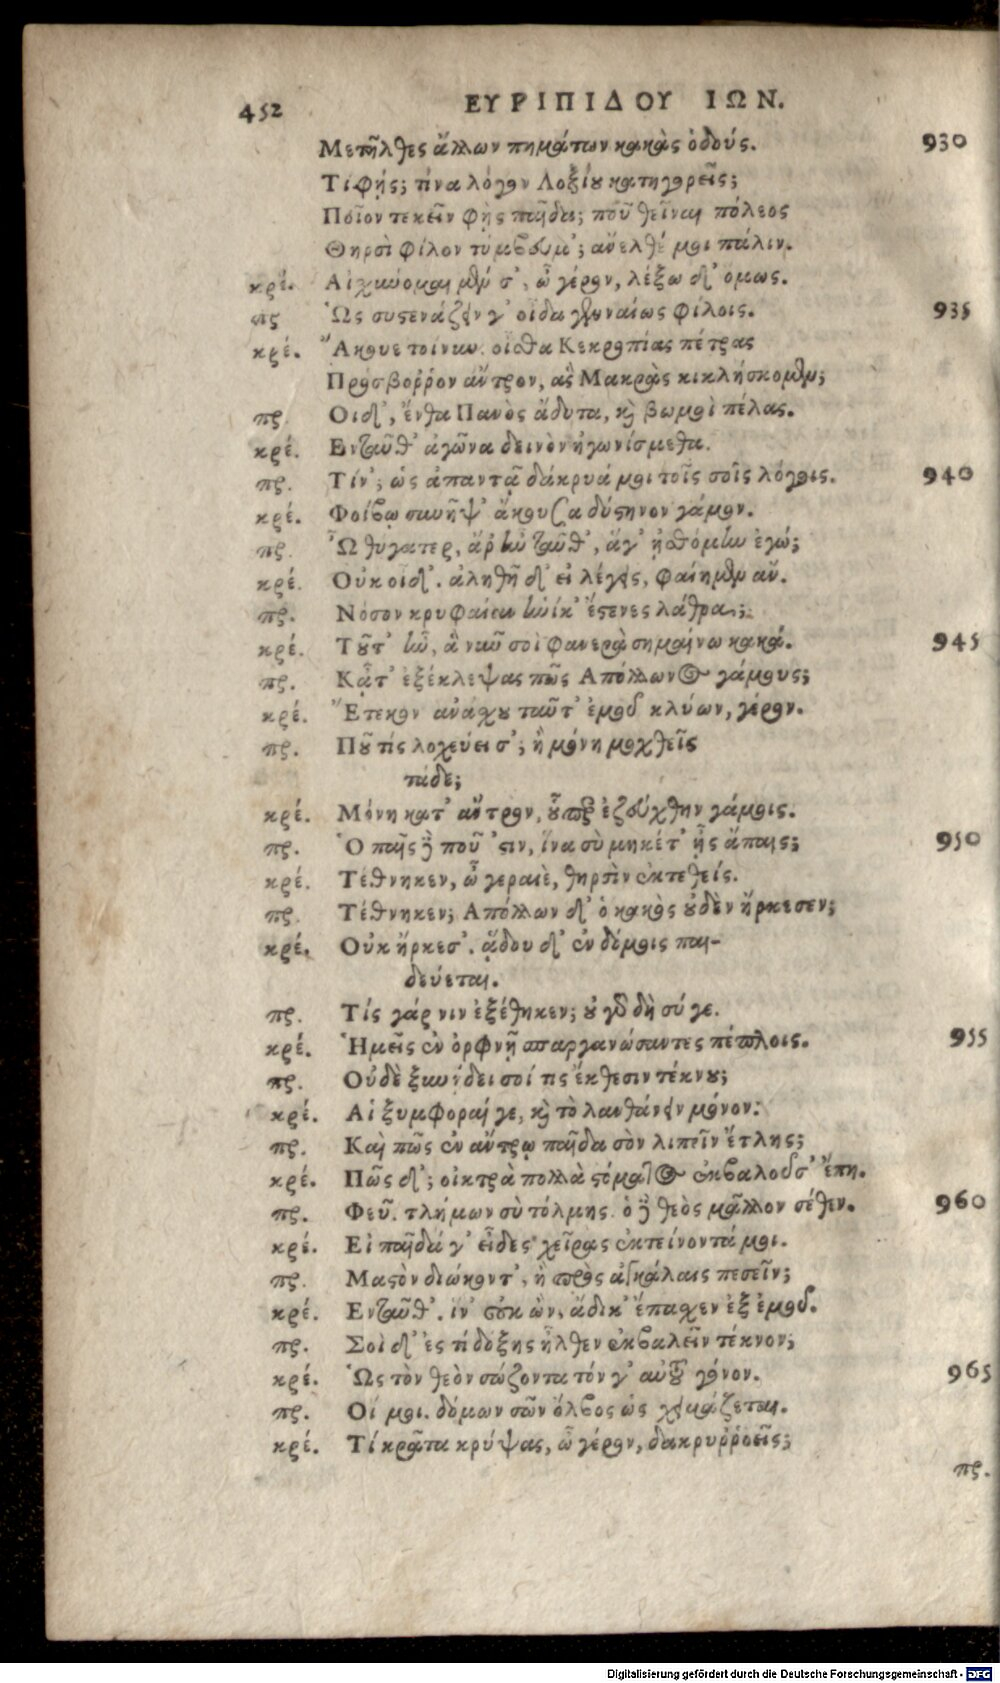 452 ΕΥΡΙΠΙΔΟΥ ΙΩΝ.
Μετῆλθες ἄλλων πημάτων κακὰς ὁδούς. 930
Τί φῄς; τίνα λόγον Λοξίου κατηγορεῖς;
Ποῖον τεκεῖν φῂς παῖδα; ποῦ θεῖναι πόλεος
Θηρσὶ φίλον τύμβευμ’; ἄνελθέ μοι πάλιν.
κρέ. Αἰχύνομαι μέν σ’, ὦ γέρον, λέξω δ’ ὅμως.
πς Ὡς συστενάζειν γ’ οἶδα γενναίως φίλοις. 935
κρέ. Ἄκουε τοίνυν. οἶσθα Κεκροπίας πέτρας
Πρόσβορρον ἄντρον, ἃς Μακρὰς κικλήσκομεν;
πς. Οιδ’, ἔνθα Πανὸς ἄδυτα, καὶ βωμοὶ πέλας.
κρέ. Ενταῦθ’ ἀγῶνα δεινὸν ἠγωνίσμεθα.
πς. Τίν’; ὡς ἀπαντᾷ δάκρυά μοι τοῖς σοῖς λόγοις. 940
κρέ. Φοίβῳ συνῆψ’ ἄκουσα δύστηνον γάμον.
πς. Ὦ θύγατερ, ἆρ’ ἦν ταῦθ’, ἅγ’ ᾐσθόμην ἐγώ;
κρέ. Οὐκ οἶδ’. ἀληθῆ δ’ εἰ λέγεις, φαίημεν ἄν.
πς. Νόσον κρυφαίαν ἡνίκ’ ἔστενες λάθρα;
κρέ. Τοῦτ’ ἦν, ἃ νῦν σοι φανερὰ σημαίνω κακά. 945
πς. Κᾆτ’ ἐξέκλεψας πῶς Απόλλωνος γάμους;
κρέ. Ἔτεκον ἀνάχου ταῦτ’ ἐμοῦ κλύων, γέρον.
πς. Ποῦ τίς λοχεύει σ’; ἢ μόνη μοχθεῖς
τάδε;
κρέ. Μόνη κατ’ ἄντρον, οὗπερ ἐζεύχθην γάμοις.
πς. Ὁ παῖς δὲ ποῦ ’στιν, ἵνα σὺ μηκέτ’ ᾖς ἄπαις; 950
κρέ. Τέθνηκεν, ὦ γεραιὲ, θηρσὶν ἐκτεθείς.
πς. Τέθνηκεν; Απόλλων δ’ ὁ κακὸς οὐδὲν ἤρκεσεν;
κρέ. Οὐκ ἤρκεσ’. ᾅδου δ’ ἐν δόμοις παι-
δεύεται.
πς. Τίς γάρ νιν ἐξέθηκεν; οὐ γὰρ δὴ σύ γε.
κρέ. Ἡμεῖς ἐν ὀρφνῇ σπαργανώσαντες πέπλοις. 955
πς. Οὐδὲ ξυνῄδει σοί τις ἔκθεσιν τέκνου;
κρέ. Αἱ ξυμφοραί γε, καὶ τὸ λανθάνειν μόνον.
πς. Καὶ πῶς ἐν ἄντρῳ παῖδα σὸν λιπεῖν ἔτλης;
κρέ. Πῶς δ’; οἰκτρὰ πολλὰ στόματος ἐκβαλοῦσ’ ἔπη.
πς. Φεῦ. τλήμων σὺ τόλμης. ὁ δὲ θεὸς μᾶλλον σέθεν. 960
κρέ. Εἰ παῖδά γ’ εἶδες χεῖρας ἐκτείνοντά μοι.
πς. Μαστὸν διώκοντ’, ἢ πρὸς ἀγκάλαις πεσεῖν;
κρέ. Ενταῦθ’. ἵν’ οὐκ ὢν, ἄδικ’ ἔπασχεν ἐξ ἐμοῦ.
πς. Σοὶ δ’ ἐς τί δόξης ἦλθεν ἐκβαλεῖν τέκνον;
κρέ. Ὡς τὸν θεὸν σώζοντα τόν γ’ αὑτοῦ γόνον. 965
πς. Οἴ μοι. δόμων σῶν ὄλβος ὡς χειμάζεται.
κρέ. Τί κρᾶτα κρύψας, ὦ γέρον, δακρυῤῥοεῖς;
πς.
Digitalisierung gefördert durch die Deutsche Forschungsgemeinschaft - DFG